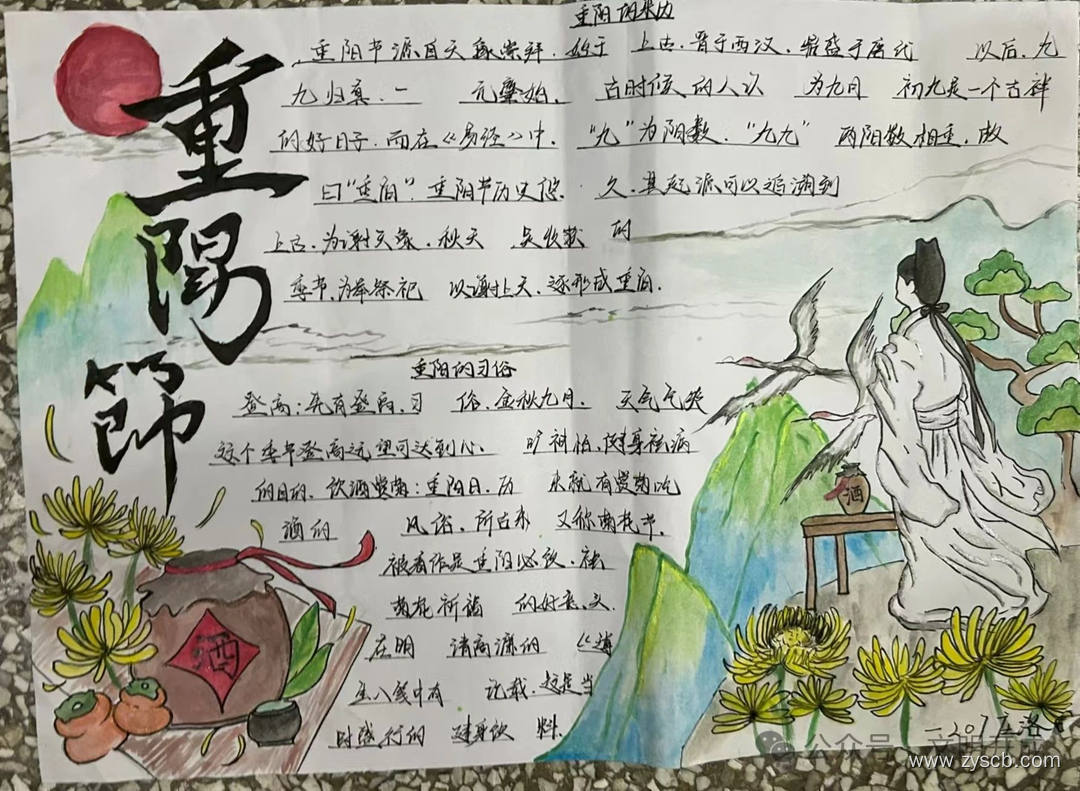 重陽節
重阳的来历
重阳节源自天象崇拜，始于 上古，普于西汉，鼎盛于唐代 以后，九
九归真，一 元肇始， 古时候人的人认 为九月 初九是一个吉祥
的好日子，而在《易经》中，“九”为阳数，“九九” 两阳数相重，故
曰“重阳”。重阳节历史悠 久，其起源可以追溯到
上古，为谢天象，秋天 是收获 的
季节，为奉祭祀 以谢上天，逐形成重阳。
重阳的习俗
登高：先有登高，习 俗，金秋九月， 天气气爽
这个季节登高远望可达到心 旷神怡，健身祛病
的目的，饮酒赏菊：重阳日，历 来就有赏菊吃
酒的 风俗，所古来 又称菊花节。
被看作是重阳必饮，祛
菊花祈福 的好意义。
在明 清高濂的 《遵
生八笺中有 记载，这是当
时盛行的 健身饮 料。
酒
酒
公众号
www.zyscb.com